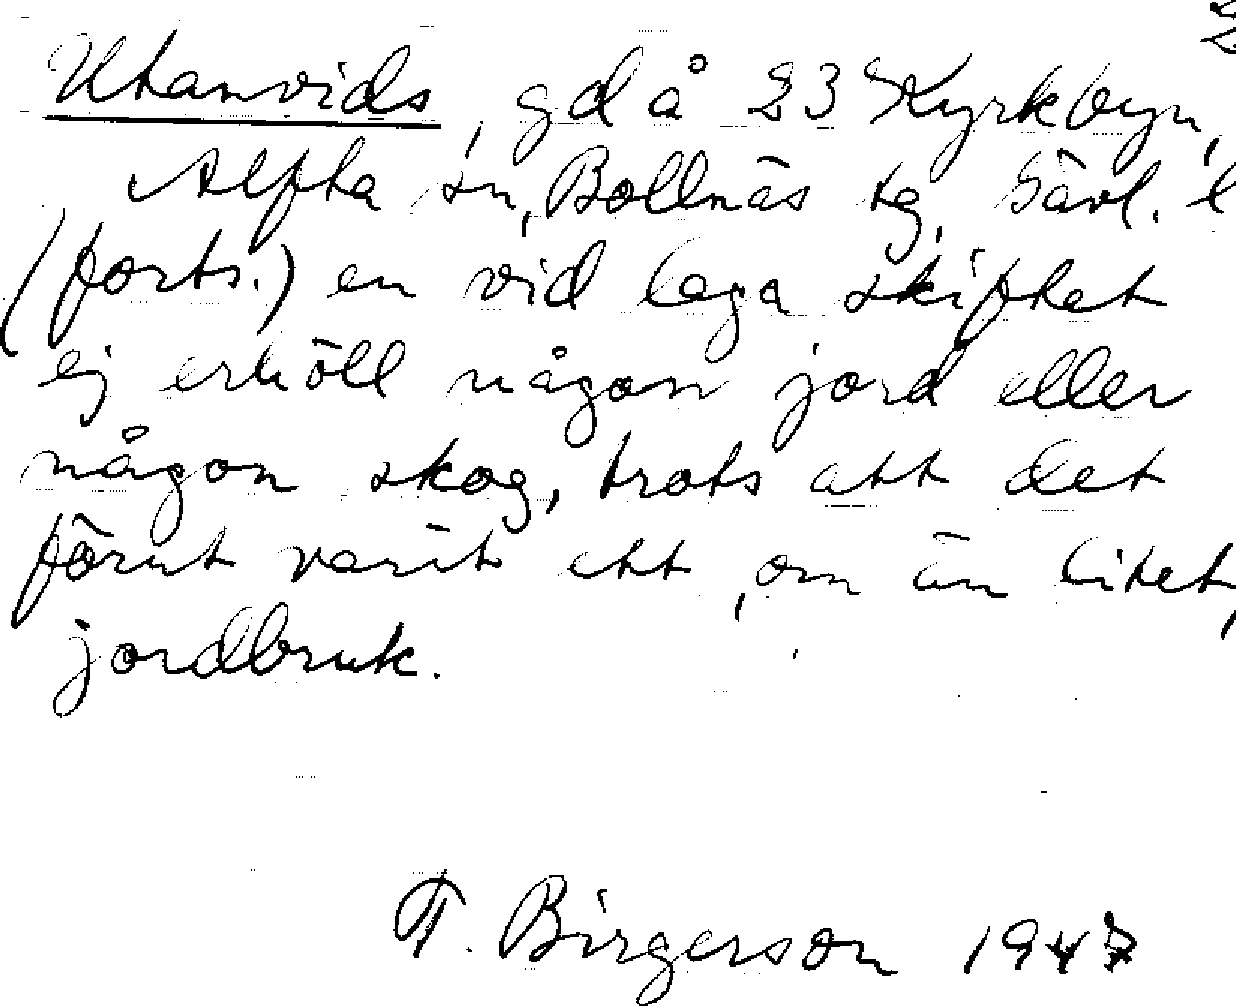 2
Utanvids, gd å 23 Kyrkbyn,
Alfta sn, Bollnäs tg, Gävl. l
(forts.) en vid laga skiftet
ej erhöll någon jord eller
någon skog, trots att det
förut varit ett, om än litet,
jordbruk.
F. Birgerson 1947